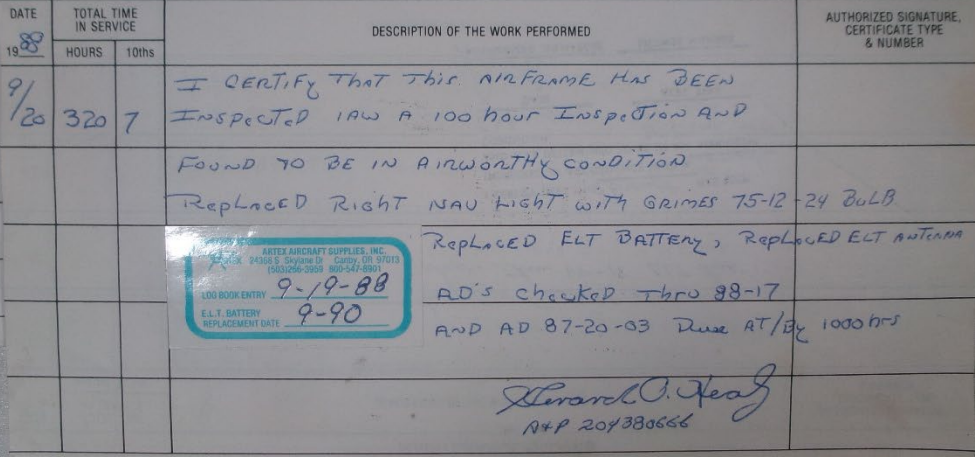 DATE
TOTAL TIME
IN SERVICE
DESCRIPTION OF THE WORK PERFORMED
AUTHORIZED SIGNATURE,
CERTIFICATE TYPE
& NUMBER
1988
HOURS
10ths
9/20
320
7
I CERTIFY THAT THIS AIRFRAME HAS BEEN
INSPECTED IAW A 100 hour INSPECTION AND
FOUND TO BE IN AIRWORTHY CONDITION
REPLACED RIGHT NAV LIGHT WITH GRIMES 75-12-24 BULB
REPLACED ELT BATTERY, REPLACED ELT ANTENNA
AD'S CHECKED THRU 88-17
AND AD 87-20-03 Due AT/By 1000 hrs
ARTEX AIRCRAFT SUPPLIES, INC.
24368 S. Skylane Dr Canby, OR 97013
800-547-8901
LOG BOOK ENTRY 9-19-88
E.L.T. BATTERY
REPLACEMENT DATE 9-90
A+P 204380666